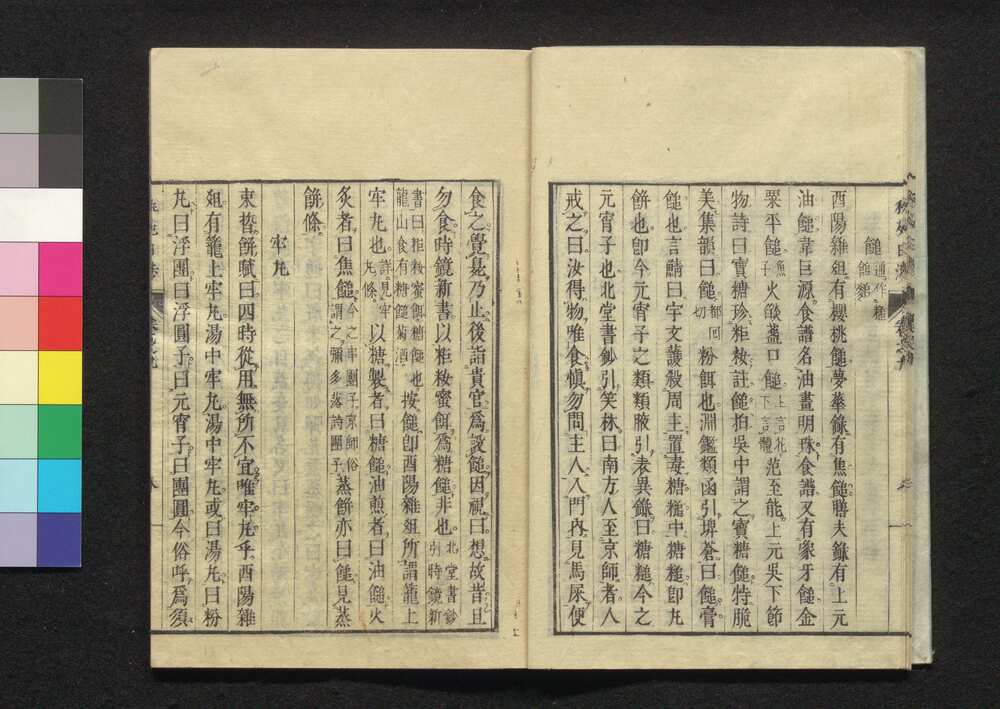 䭔 通作糙
酉陽雜俎有櫻桃䭔夢華錄有焦䭔膳夫錄有上元
油䭔韋巨源食譜名油畫明珠食譜又有象牙䭔金
粟平䭔 火燄盞口䭔 上言花下言體 范至能上元吳下節
物詩曰寶糖珍粔籹註䭔拍吳中謂之寶糖䭔特脆
美集韻曰䭔 都回切 粉餌也淵鑑類函引埤蒼曰䭔膏
䭔也言鯖曰宇文護殺周主置毒糖䭔中糖䭔卽丸
餅也卽今元宵子之類類腋引表異錄曰糖䭔今之
元宵子也北堂書鈔引笑林曰南方人至京師者人
戒之曰汝得物唯食愼勿問主人入門內見馬屎便
食之覺臭乃止後詣貴官爲設䭔因視曰想故昔且
勿食時鏡新書以粔籹蜜餌爲糖䭔非也 北堂書鈔引時鏡新
書曰粔籹蜜餌糖䭔也龍山食有糖䭔菊酒 按䭔卽酉陽雜俎所謂籠上
牢丸也 詳見牢丸條 以糖製者曰糖䭔油煎者曰油䭔火
炙者曰焦䭔 今之串團子京師俗謂之彌多落詩團子 蒸餅亦曰䭔見蒸
餅條
牢丸
束晳餅賦曰四時從用無所不宜唯牢丸乎酉陽雜
俎有籠上牢丸湯中牢丸湯中牢丸或曰湯丸曰粉
丸曰浮團曰浮圓子曰元宵子曰團圓今俗呼爲須